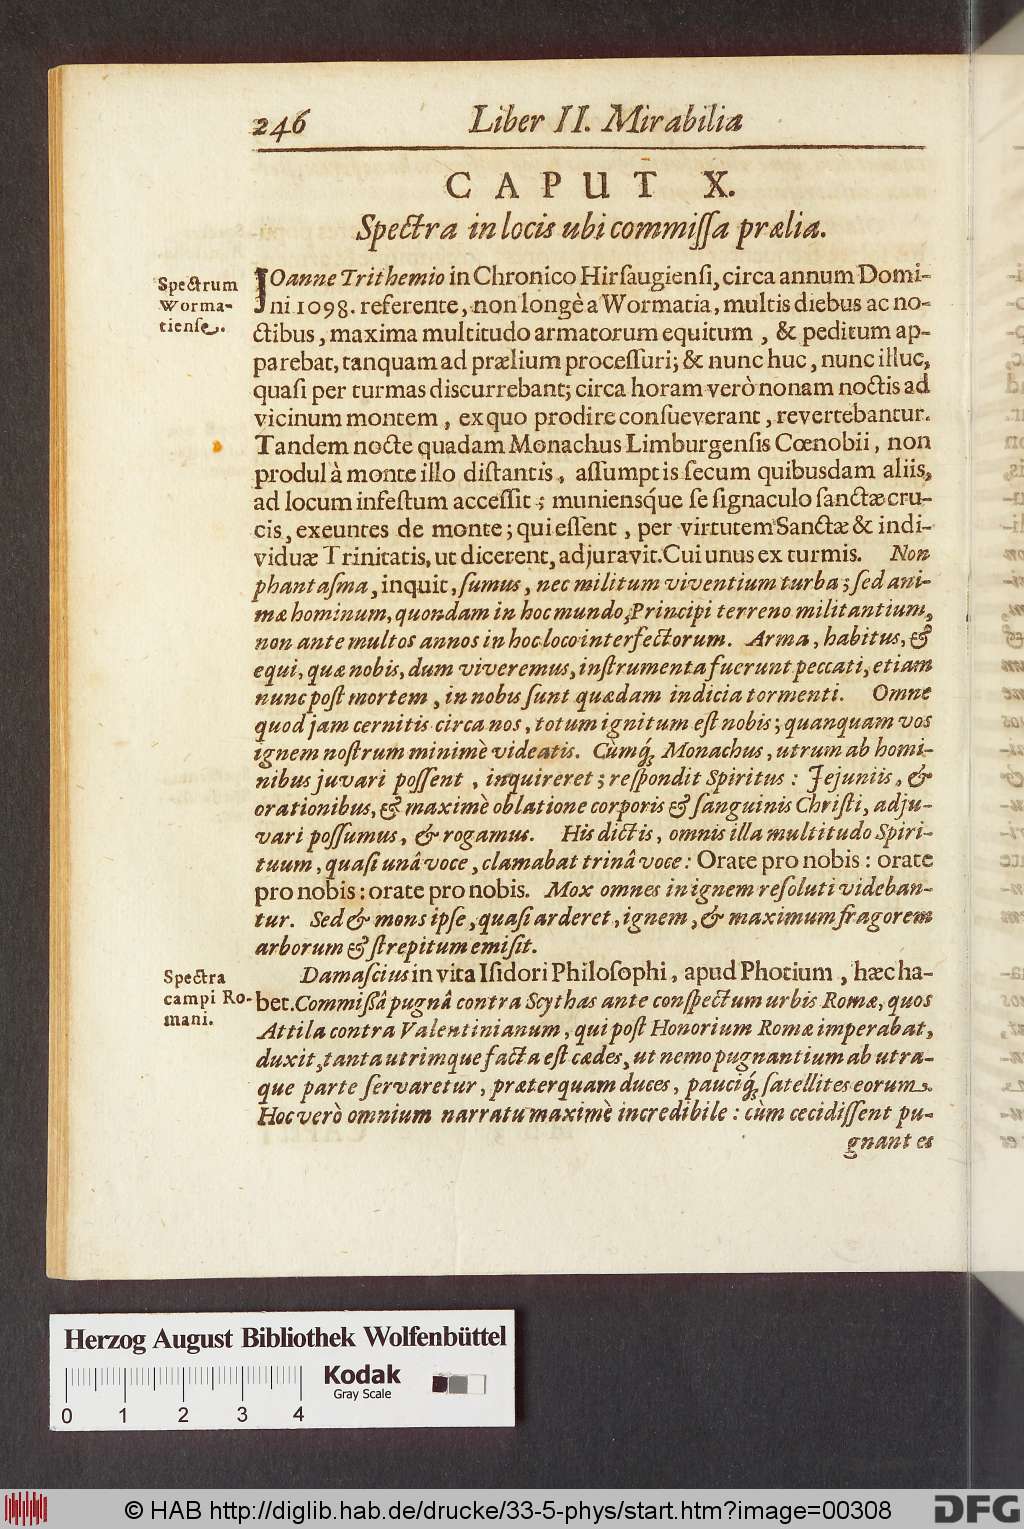 246 Liber II. Mirabilia
CAPUT X.
Spectra in locis ubi commiſſa prælia.
Spectrum
Worma-
tienſe.
JOanne Trithemio in Chronico Hirſaugienſi, circa annum Domi-
ni 1098. referente, non longè a Wormatia, multis diebus ac no-
ctibus, maxima multitudo armatorum equitum, & peditum ap-
parebat, tanquam ad prælium proceſſuri; & nunc huc, nunc illuc,
quaſi per turmas discurrebant; circa horam verò nonam noctis ad
vicinum montem, ex quo prodire conſueverant, revertebantur.
Tandem nocte quadam Monachus Limburgenſis Cœnobii, non
produl à monte illo diſtantis, aſſumptis ſecum quibusdam aliis,
ad locum infeſtum acceſſit; muniensq́ue ſe ſignaculo ſanctæ cru-
cis, exeuntes de monte; qui eſſent, per virtutem Sanctæ & indi-
viduæ Trinitatis, ut dicerent, adjuravit. Cui unus ex turmis. Non
phantaſma, inquit, ſumus, nec militum viventium turba; ſed ani-
mæ hominum, quondam in hoc mundo, Principi terreno militantium,
non ante multos annos in hoc loco interfectorum. Arma, habitus, &
equi, quæ nobis, dum viveremus, inſtrumenta fuerunt peccati, etiam
nunc poſt mortem, in nobis ſunt quædam indicia tormenti. Omne
quod jam cernitis circa nos, totum ignitum eſt nobis; quanquam vos
ignem noſtrum minimè videatis. Cùmq́; Monachus, utrum ab homi-
nibus juvari poſſent, inquireret; reſpondit Spiritus: Jejuniis, &
orationibus, & maximè oblatione corporis & ſanguinis Chriſti, adju-
vari poſſumus, & rogamus. His dictis, omnis illa multitudo Spiri-
tuum, quaſi unâ voce, clamabat trinâ voce: Orate pro nobis: orate
pro nobis: orate pro nobis. Mox omnes in ignem reſoluti videban-
tur. Sed & mons ipſe, quaſi arderet, ignem, & maximum fragorem
arborum & ſtrepitum emiſit.
Spectra
campi Ro-
mani.
Damaſcius in vita Iſidori Philoſophi, apud Photium, hæc ha-
bet. Commiſsâ pugnâ contra Scythas ante conſpectum urbis Romæ, quos
Attila contra Valentinianum, qui poſt Honorium Romæ imperabat,
duxit, tanta utrimque facta eſt cædes, ut nemo pugnantium ab utra-
que parte ſervaretur, præterquam duces, pauciq́; ſatellites eorum.
Hoc verò omnium narratu maximè incredibile: cùm cecidiſſent pu-
gnantes
Herzog August Bibliothek Wolfenbüttel
Kodak
Gray Scale
0 1 2 3 4
© HAB http://diglib.hab.de/drucke/33-5-phys/start.htm?image=00308
DFG